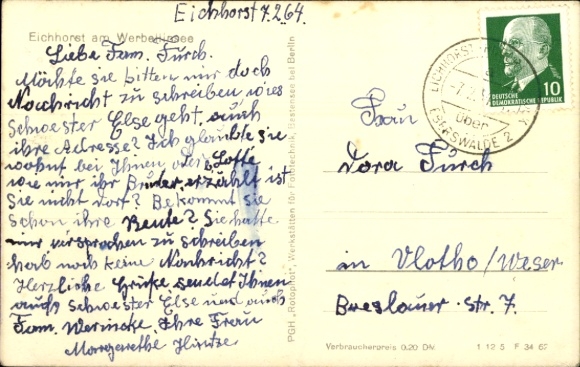 Eichhorst 7.2.64.
Eichhorst am Werbellinsee
Liebe Fam. Fürch.
Möchte sie bitten mir doch
Nachricht zu schreiben wies
Schwester Else geht, auch
ihre Adresse? Ich glaubte sie
wohnt bei Ihnen oder Lotte
wie mir ihr Bruder erzählt ist
Sie nicht dort? Bekommt sie
schon ihre Rente? Sie hatte
mir versprochen zu schreiben
hab noch keine Nachricht?
Herzliche Grüße sendet Ihnen
auch Schwester Else und auch
Fam. Werincke, Ihre Frau
Margarethe Hintze.
PGH „Rotophot", Werkstätten für Fototechnik, Bestensee bei Berlin
DEUTSCHE
DEMOKRATISCHE REPUBLIK
10
EICHHORST
über
EBERSWALDE 2
Frau
Dora Fürch
in Vlotho/Weser
Breslauer-Str. 7.
Verbraucherpreis 0,20 DM 1 12 5 F 34 62